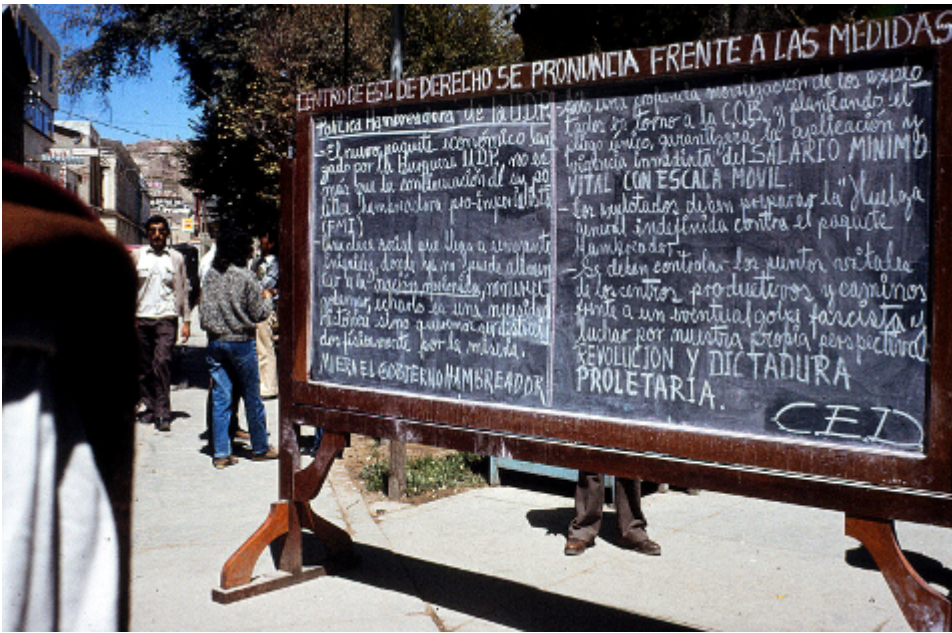 CENTRO DE EST. DE DERECHO SE PRONUNCIA FRENTE A LAS MEDIDAS
Política Hambreadora de la UDP
- El nuevo paquete económico lan
zado por la burguesa UDP, no es
más que la continuación de su po
lítica hambreadora pro-imperialista
(FMI)
- Una clase social que llega a semejante
donde ya no puede alimen
tar a la nación
gobernar, echarlo es una necesidad
histórica si no queremos
dos físicamente por la miseria.
MUERA EL GOBIERNO HAMBREADOR
- Solo una profunda movilización de los explo
tados en torno a la C.O.B. y planteando el
pliego único, garantizará la aplicación y
vigencia inmediata del SALARIO MÍNIMO
VITAL CON ESCALA MOVIL.
- Los explotados deben preparar la "Huelga
general indefinida contra el paquete
Hambreador.
- Se deben controlar los puntos vitales
de los centros productivos y caminos
frente a un eventual golpe fascista y
luchar por nuestra propia perspectiva
REVOLUCION Y DICTADURA
PROLETARIA.
C.E.D